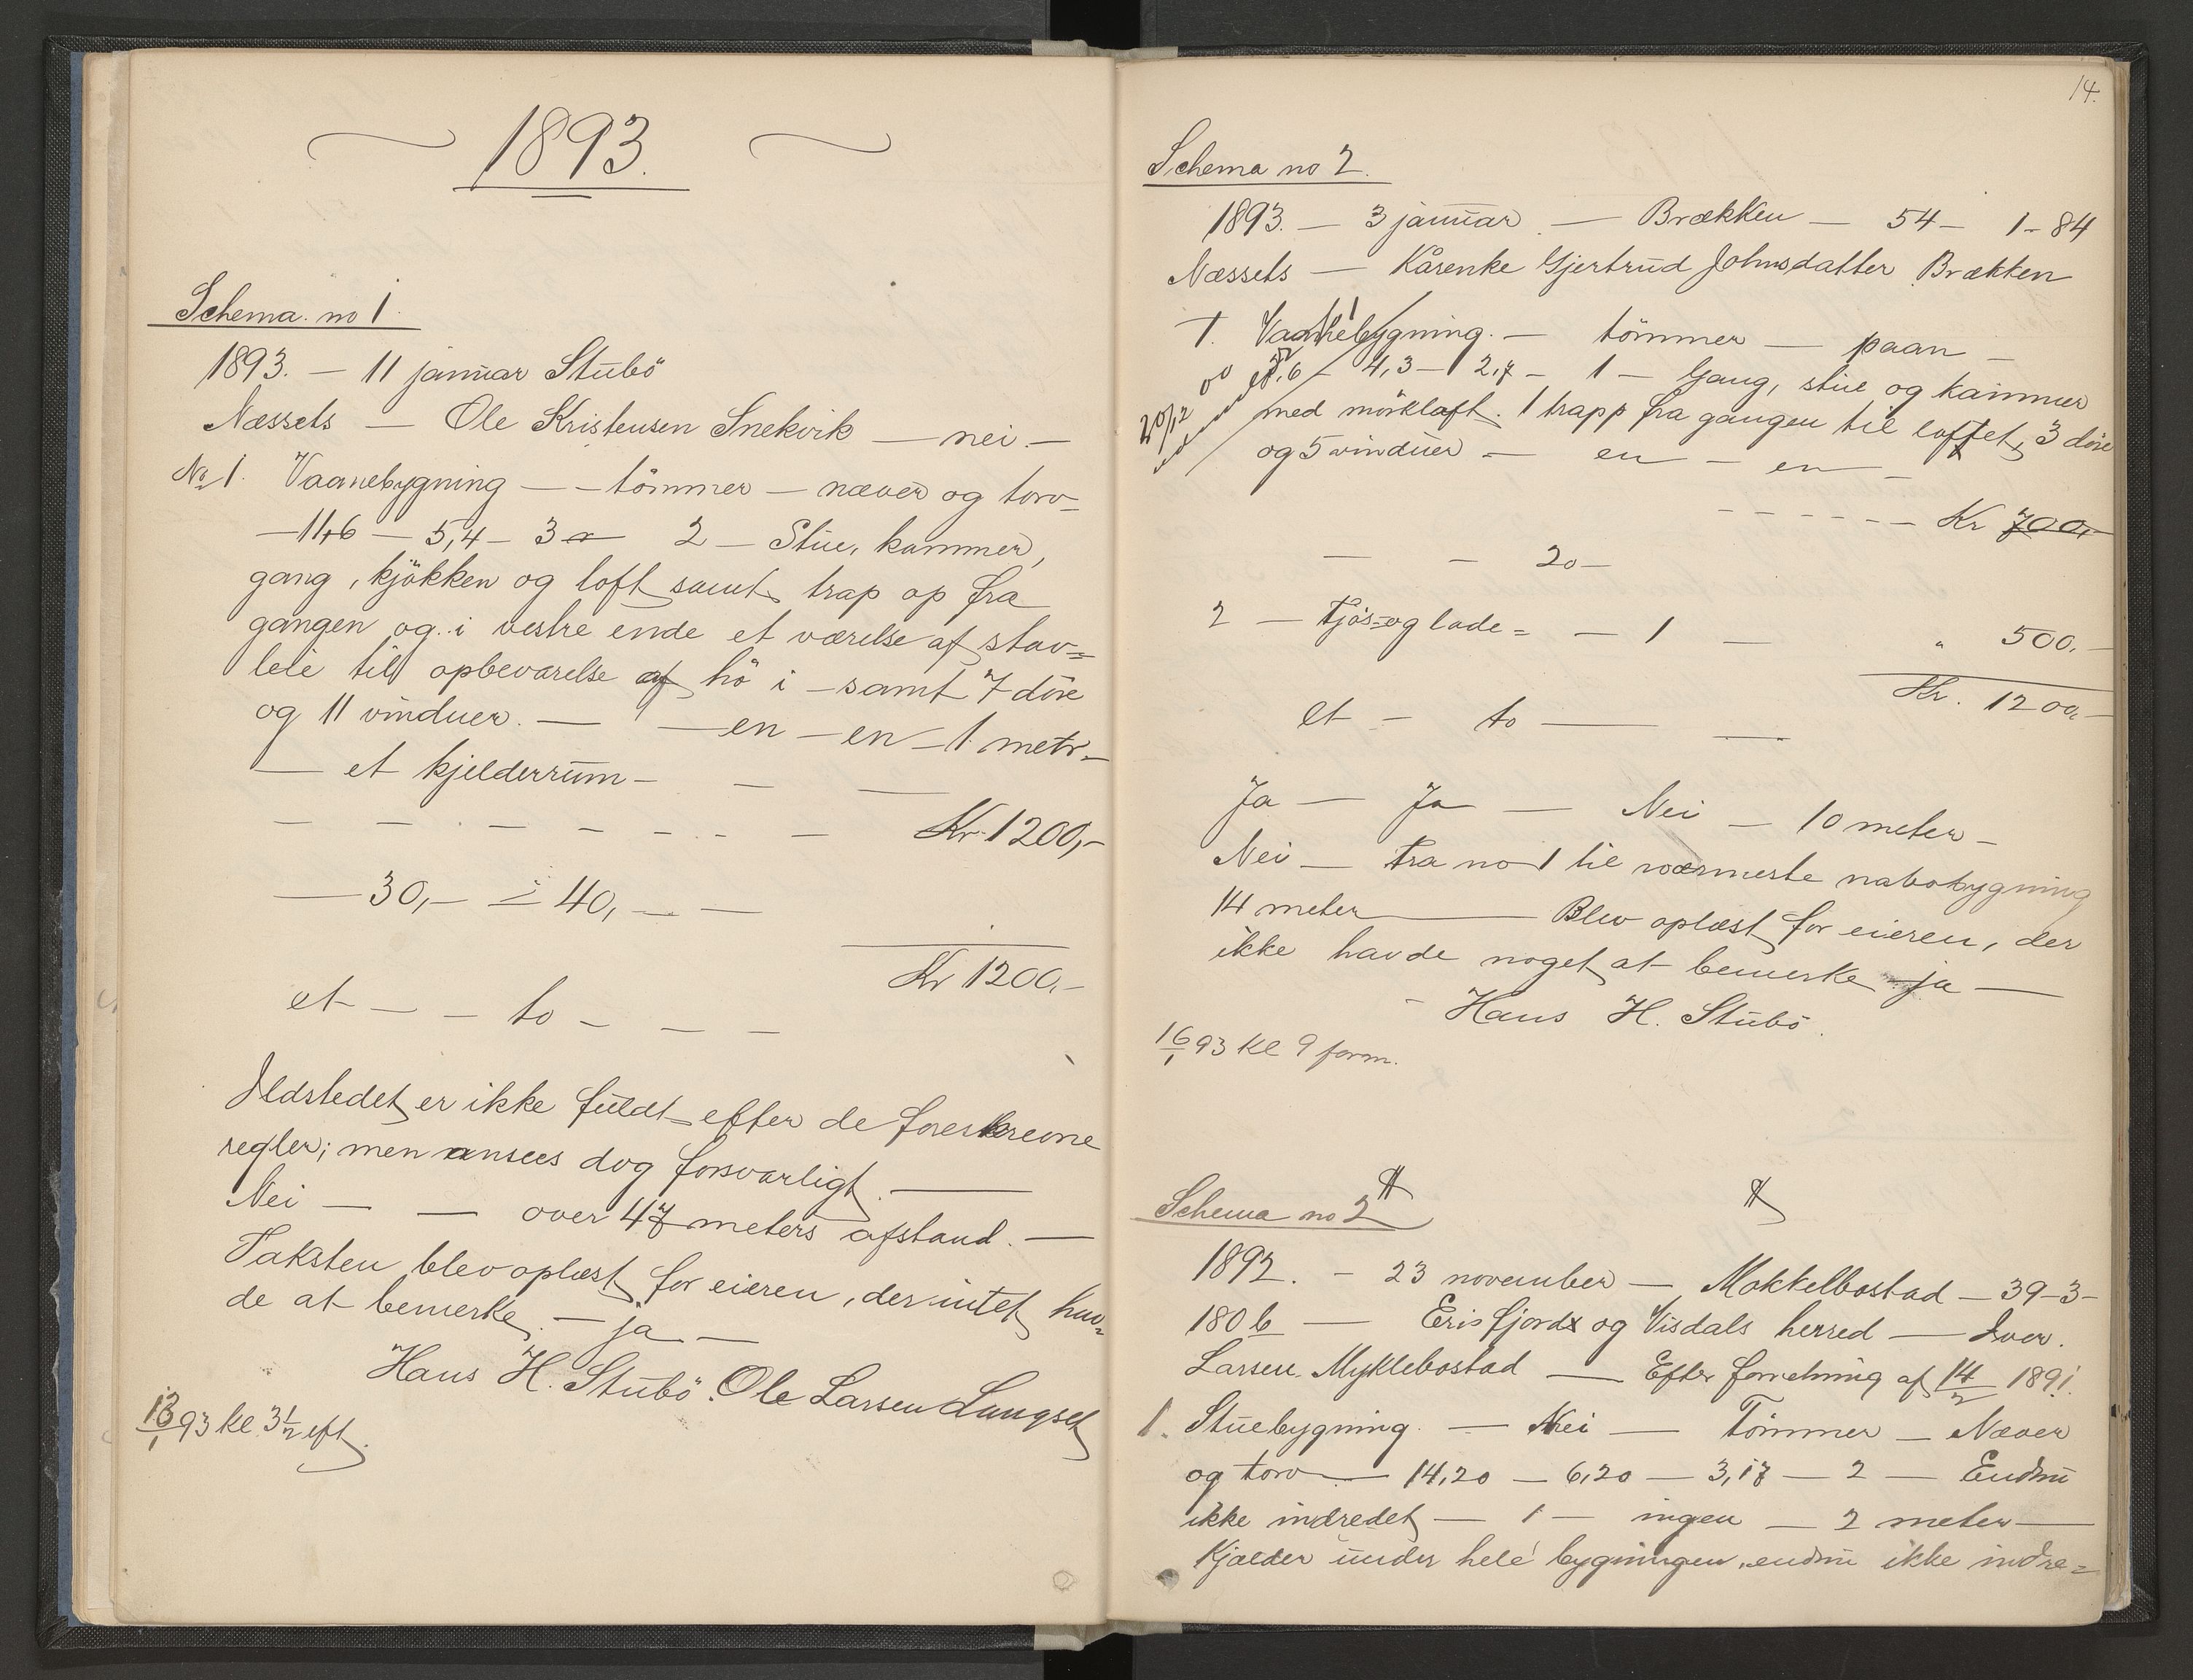 1893.
Schema no 1.
1893. — 11 januar Stubö
Næssets — Ole Kristensen Snekvik — nei. —
No 1. Vaanebygning — — tömmer — næver og torv=
— 11,6 — 5,4 — 3 — 2 — Stue, kammer,
gang, kjökken og loft samt trap op fra
gangen og i vestre ende et værelse af stav=
leie til opbevarelse af hö i — samt 7 döre
og 11 vinduer. — — en — en — 1 metr. —
— et kjelderrum — — —
— — — — — — — — Kr 1200,—
— 30,— — 40,— —
Kr 1200.—
et — — to — — —
Ildstedet er ikke fuldt efter de foreskrevne
regler; men ansees dog forsvarligt. —
Nei — — over 47 meters afstand. —
Taksten blev oplæst for eieren, der intet hav=
de at bemerke. — ja —
Hans H. Stubö. Ole Larsen Langset
13/1 93 kl 3½ eft.
14.
Schema no 2.
1893. — 3 januar. — Brækken — 54 — 1 — 84
Næssets — Karenke Gjertrud Johnsdatter Brækken
1. Vaanebygning. — tömmer — paan —
20/12 00
8,6 — 4,3 — 2,7 — 1 — Gang, stue og kammer
med mörkloft. 1 trapp fra gangen til loftet, 3 döre
og 5 vinduer — en — en —
— — — — — — Kr 700,—
— — 20 —
2 — Fjøs= og lade= — 1 — „ 500.—
Kr. 1200,—
et — to — —
Ja — Ja — Nei — 10 meter —
Nei — Fra no 1 til nærmeste nabobygning
14 meter — Blev oplæst for eieren, der
ikke havde noget at bemerke — ja —
Hans H. Stubö.
16/1 93 kl 9 form.
Schema no 2
1892. — 23 november — Mokkelbostad — 39—3—
180 b — Erisfjords og Visdals herred — Iver
Larsen Myklebostad — Efter forretning af 14/2 1891.
1. Stuebygning. — Nei — Tömmer — Næver
og torv — 14,20 — 6,20 — 3,17 — 2 — Endnu
ikke indredet — 1 — ingen — 2 meter —
Kjælder under hele bygningen, endnu ikke indre=